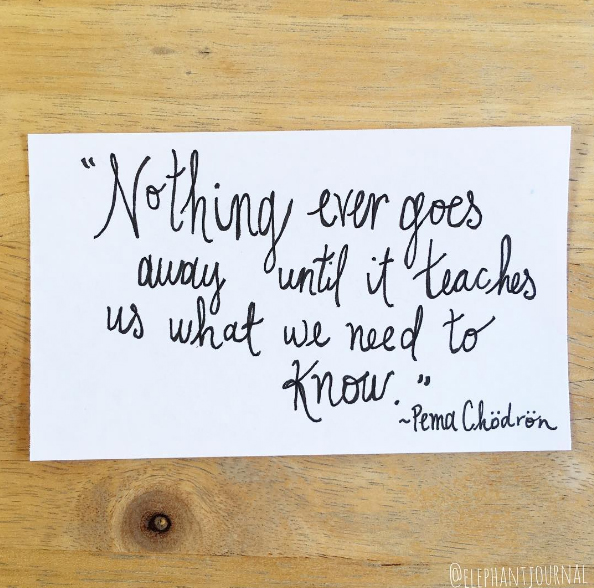 "Nothing ever goes
away until it teaches
us what we need to
know."
~Pema Chödrön
@ELEPHANTJOURNAL